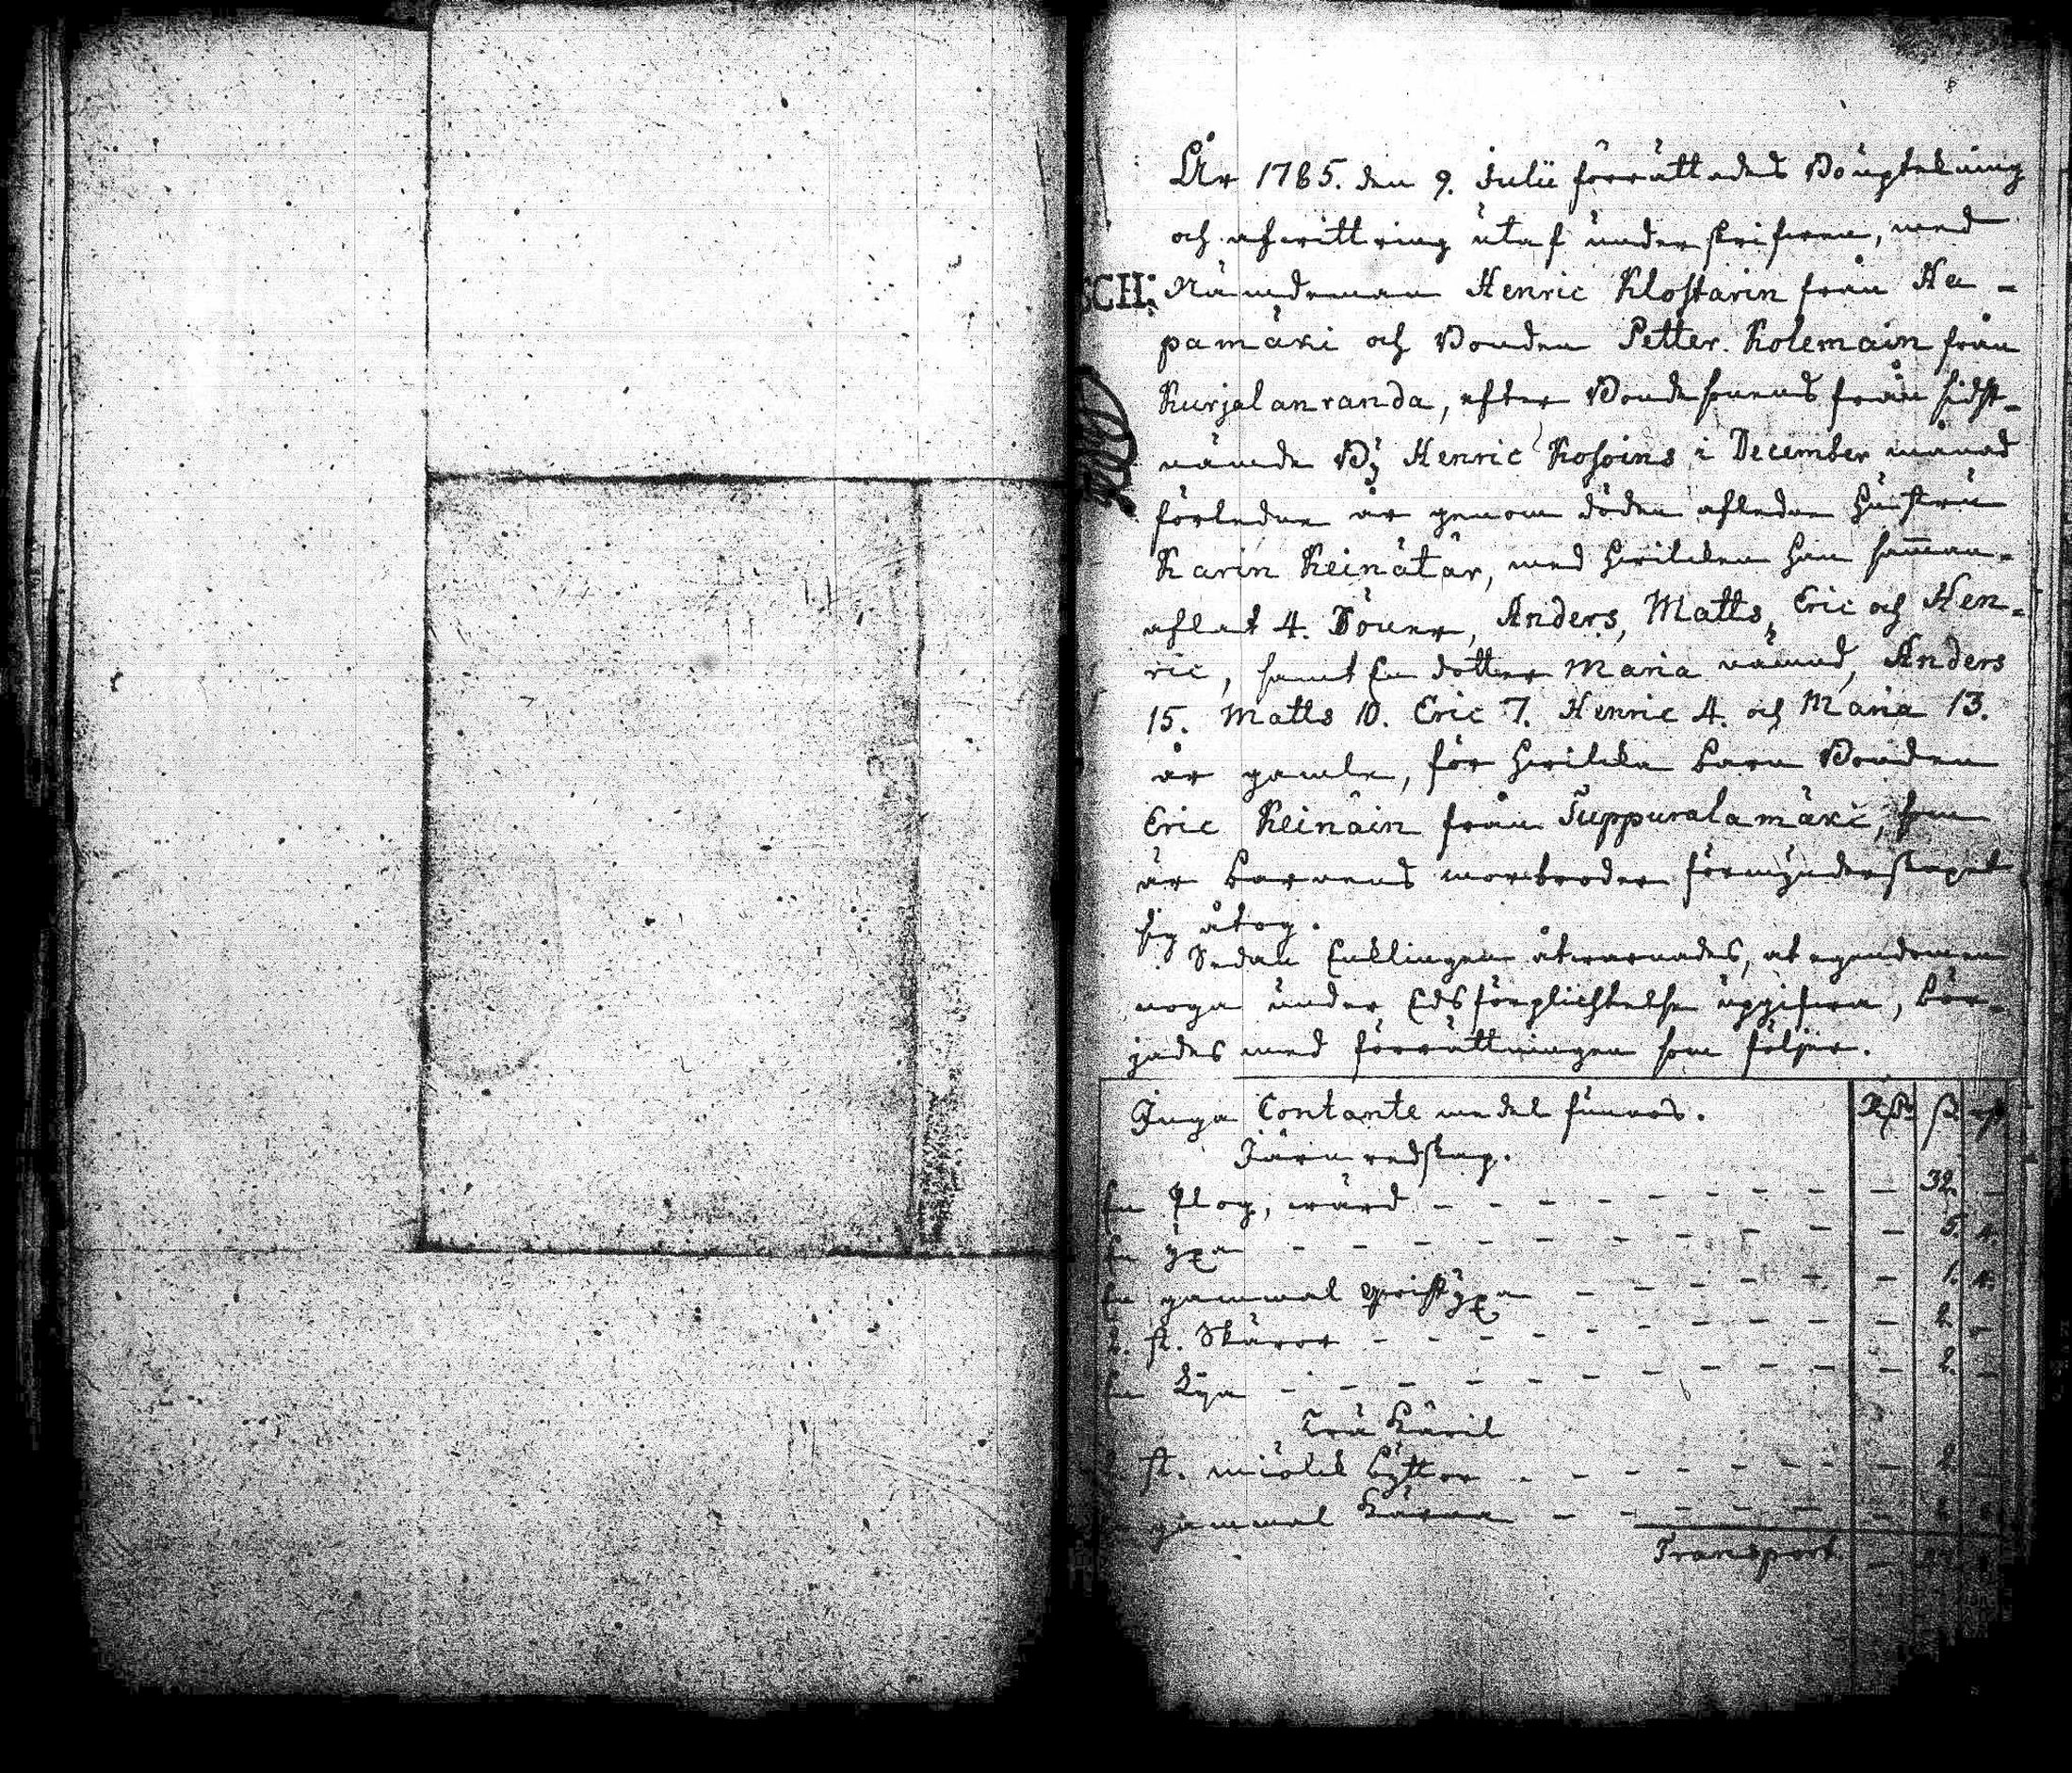 År 1785. den 9. Julii förrättades Bouptekning
och afwittring utaf underskrifwen, med
Nämndeman Henric Klostarin från Ha-
pamäki och Bonden Petter Kolemain från
Kurjalanranda, efter Bondesonens från sidst-
nämde By Henric Kosoins i December månad
förledne år genom döden afledne Hustru
Karin Keinätär, med hwilcken han samman-
aflat 4. Söner, Anders, Matts, Eric och Hen-
ric, samt En dotter Maria nämnd, Anders
15. Matts 10. Eric 7. Henric 4. och Maria 13.
år gamle, för hwilcka barn Bonden
Eric Keinäin från Tuppuralamäki, som
är barnens morbroder förmynderskapet
sig åtog.
Sedan Enklingen åtwarnades, at egendomen
noga under Edsförplichtelse uppgifwa, bör-
jades med förrättningen som följer.
Inga Contante medel funnos.
Järn redskap.
En Plog, wärd - - - - - - - - 32. -
En yxa - - - - - - - - - 5. 4.
En gammal qwistyxa - - - - - - 1. 4.
2. st. Skäror - - - - - - - - 2. -
En Lya - - - - - - - - - 2. -
Trä Käril
st. miölk byttor - - - - - - - 2.
gammal kärna - - - - - -
Transport